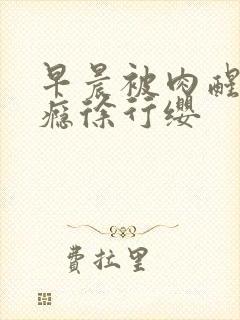 早晨被肉醒
瘾徐行缨
费拉里